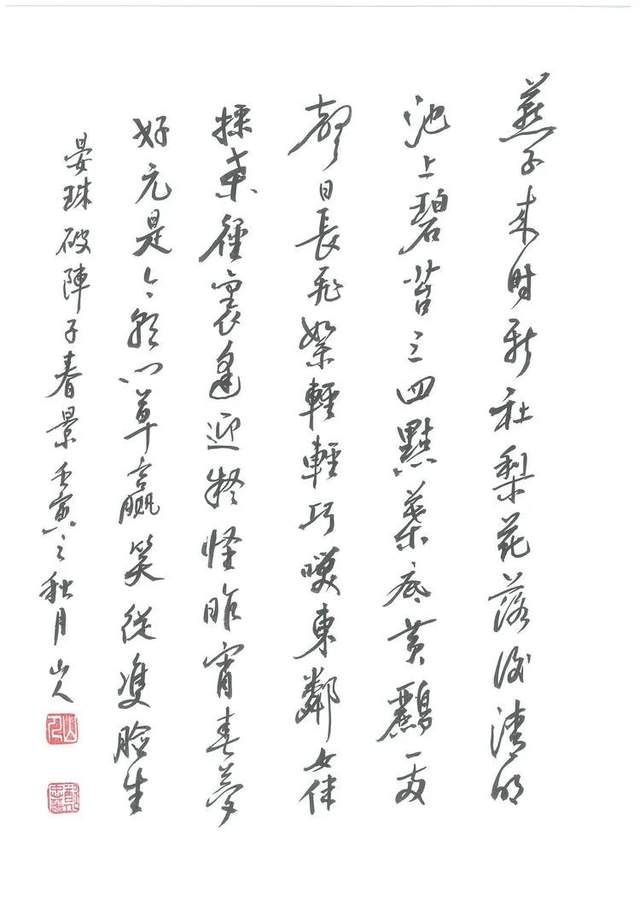 燕子来时新社梨花落後清明
池上碧苔三四點葉底黄鸝一两
聲日長飛絮輕輕巧咲東鄰女伴
採桑徑裏逢迎疑怪昨宵春夢
好元是今朝鬥草贏笑從雙臉生
晏珠破陣子春景壬寅之秋月山人